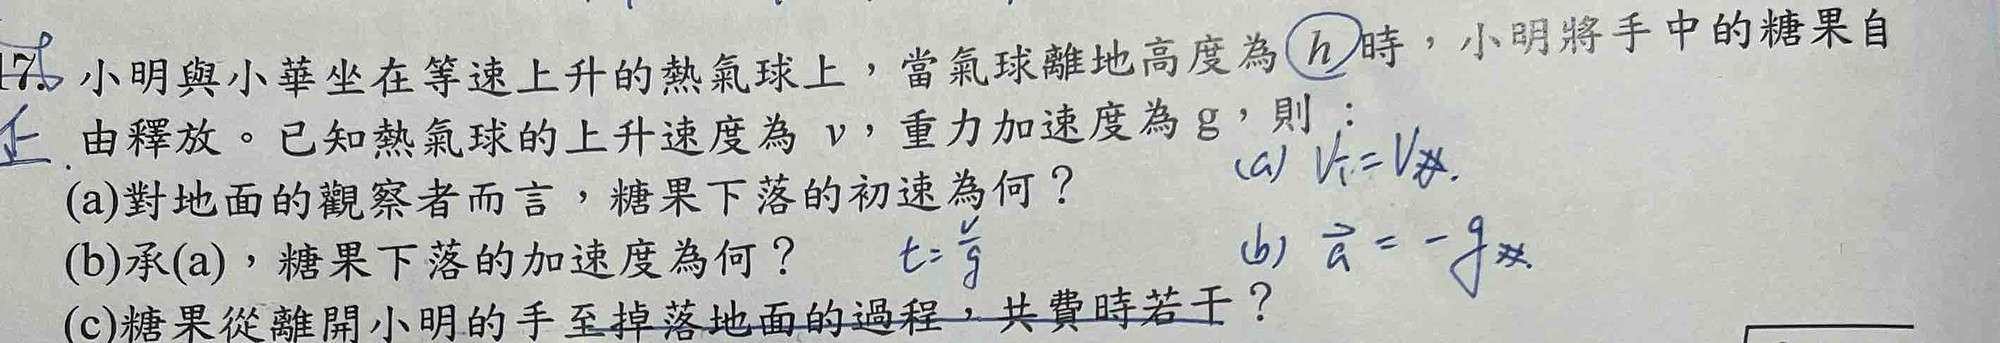 17. 小明與小華坐在等速上升的熱氣球上，當氣球離地高度為h時，小明將手中的糖果自
由釋放。已知熱氣球的上升速度為 v，重力加速度為g，則：
(a)對地面的觀察者而言，糖果下落的初速為何？
(a) V₁=V
(b)承(a)，糖果下落的加速度為何？
t=v/g
(b) a⃗ = -g
(c)糖果從離開小明的手至掉落地面的過程，共費時若干？